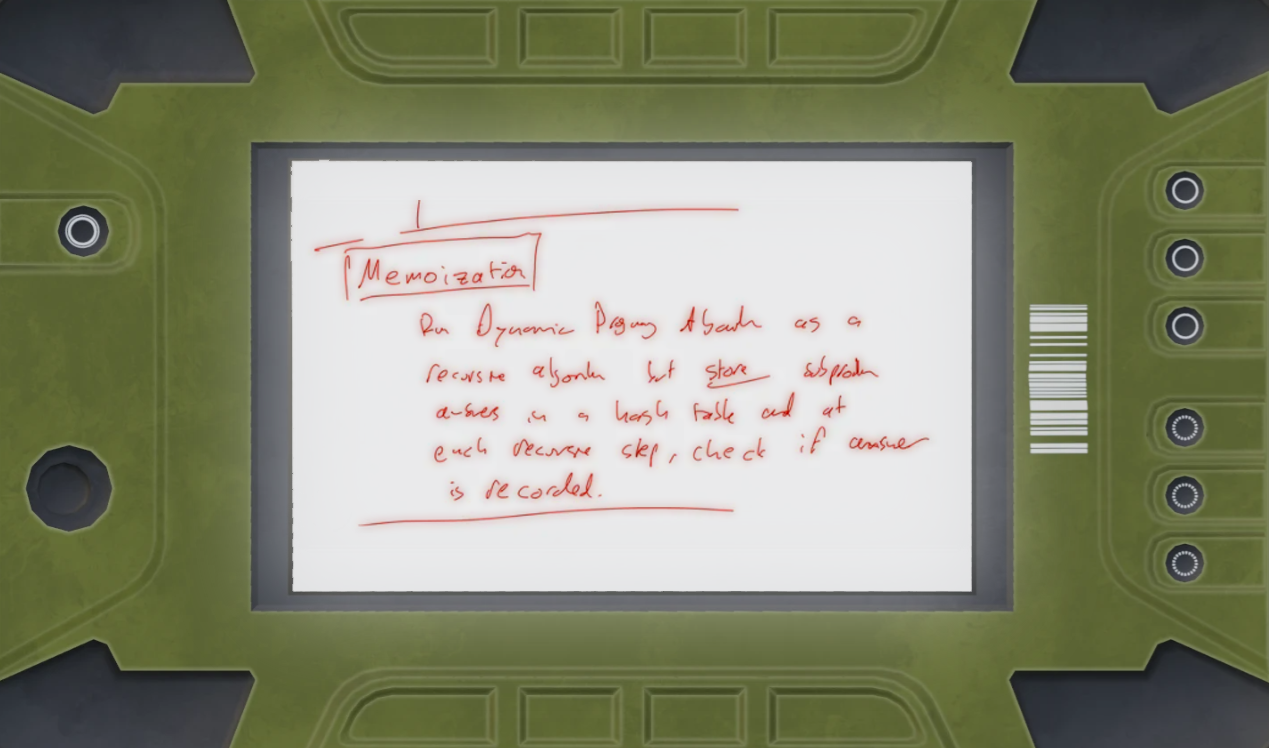 Memoization
Run Dynamic Program Algorithm as a
recursive algorithm but store subproblem
answers in a hash table and at
each recursive step, check if answer
is recorded.